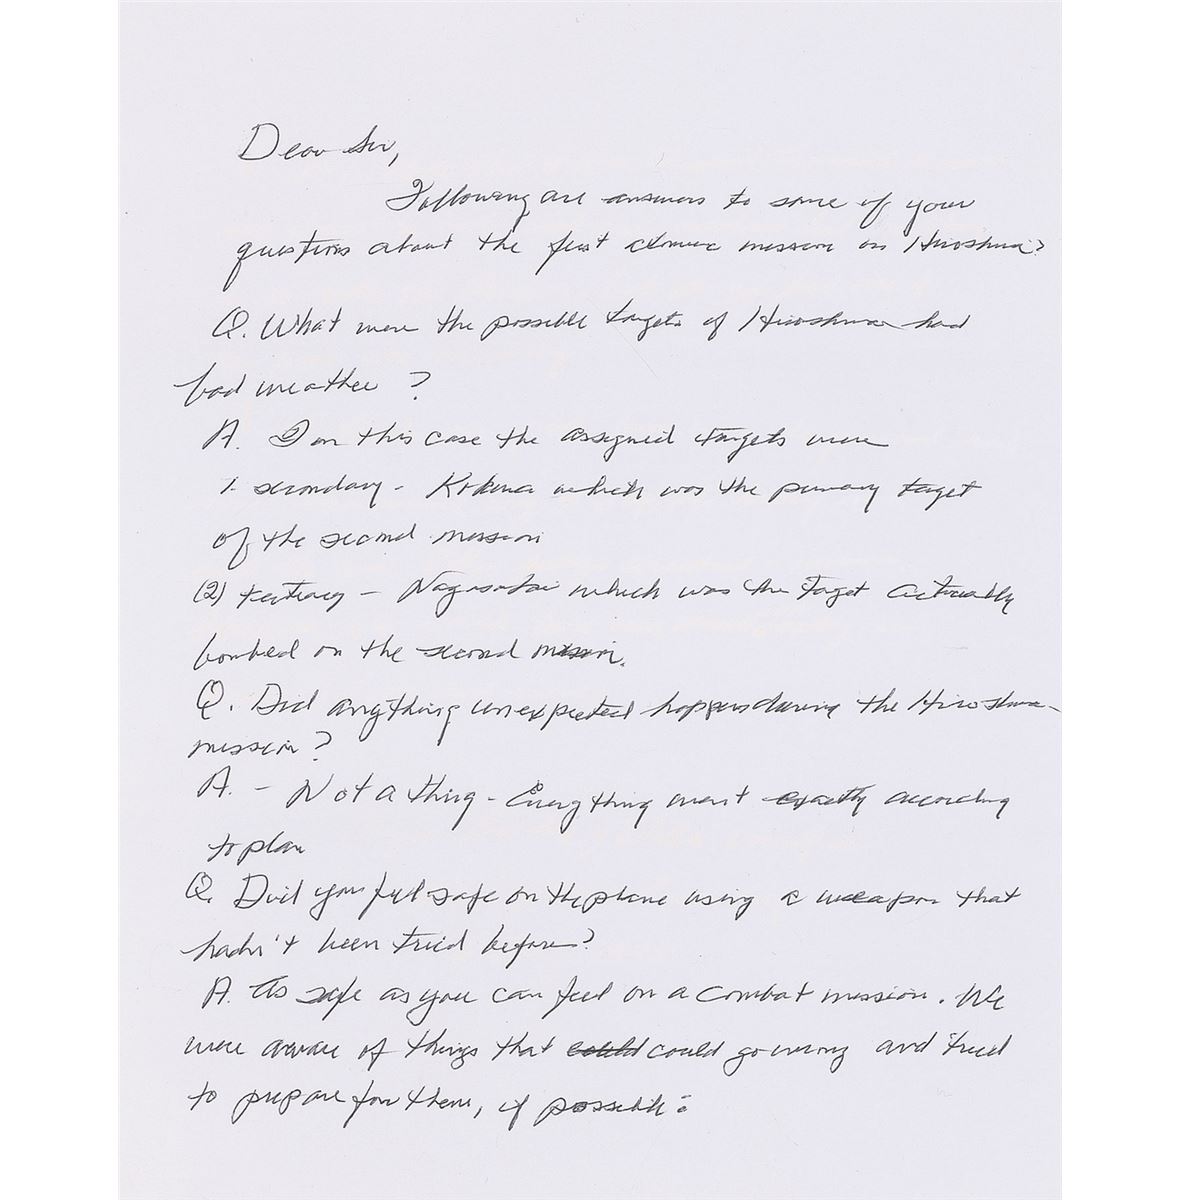 Dear Sir,
Following are answers to some of your
questions about the first atomic mission on Hiroshima?
Q. What were the possible targets if Hiroshima had
bad weather ?
A. In this case the assigned targets were
1. secondary - Kokura which was the primary target
of the second mission
(2) tertiary - Nagasaki which was the target actually
bombed on the second mission.
Q. Did anything unexpected happen during the Hiroshima
mission?
A. - Not a thing - Everything went exactly according
to plan
Q. Did you feel safe on the plane using a weapon that
hadn't been tried before?
A. As safe as you can feel on a combat mission. We
were aware of things that could could go wrong and tried
to prepare for them, if possible.